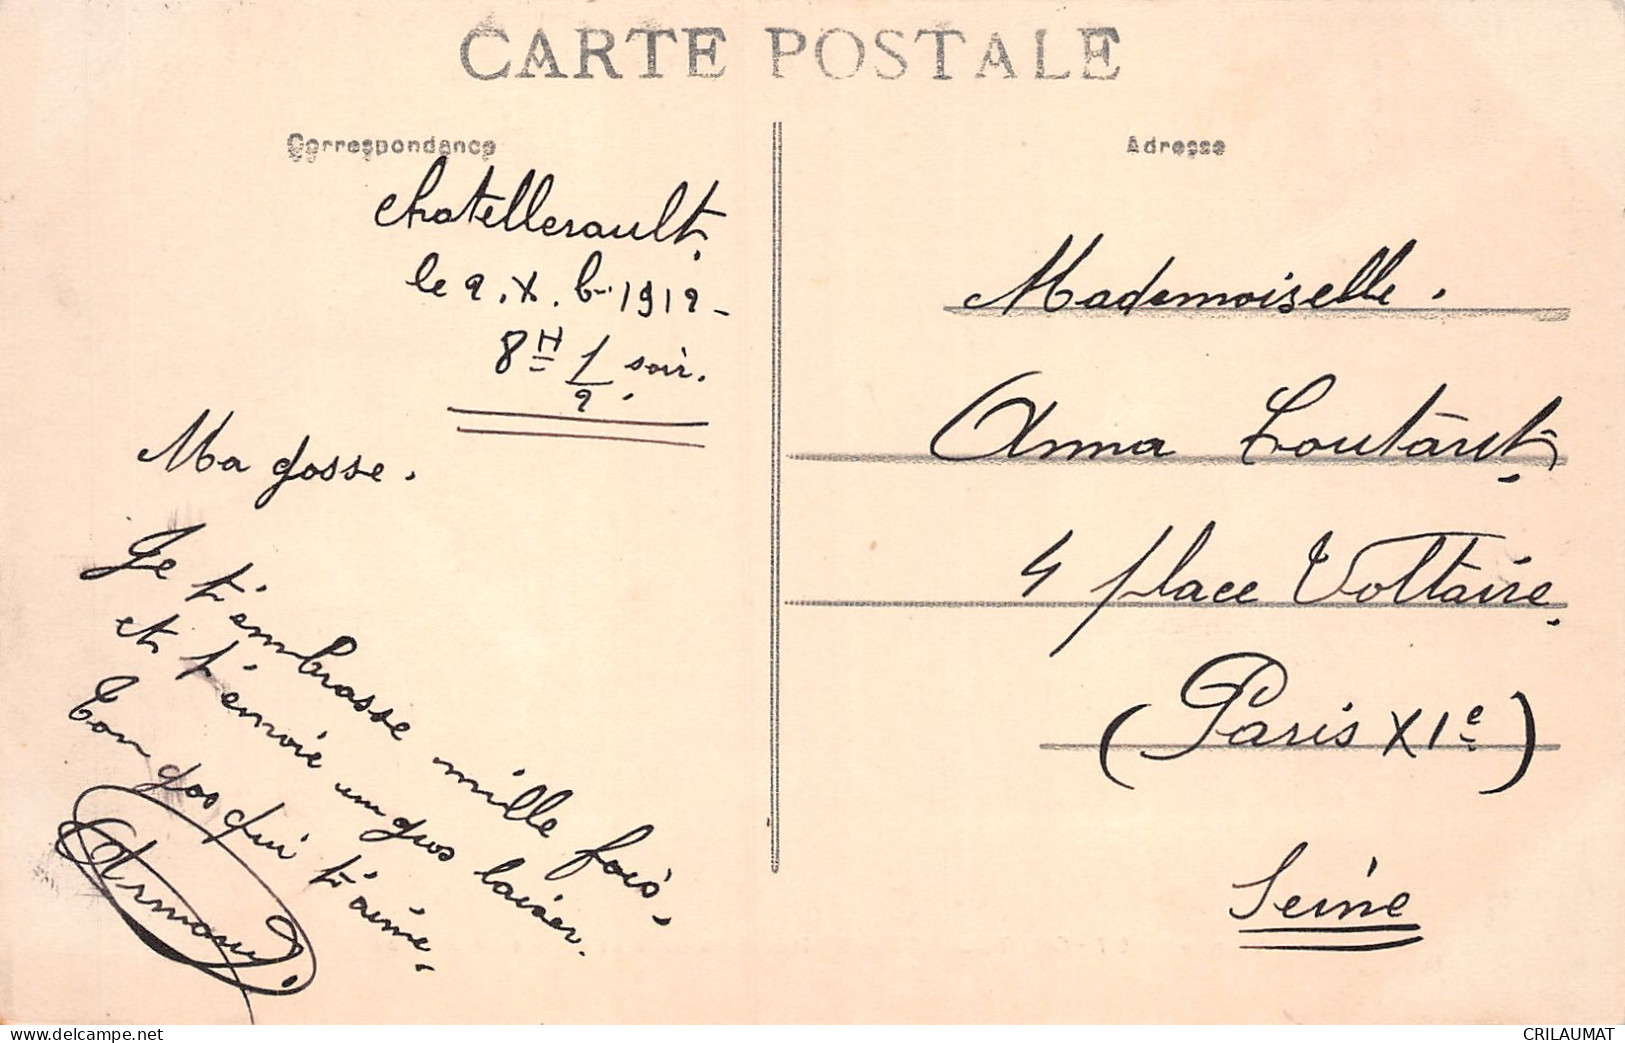 CARTE POSTALE
Correspondance
Adresse
chatellerault.
le 2. X. b- 1912-
8H 1/2 soir.
Ma gosse.
Je t'embrasse mille fois.
et t'envoie un gros baiser.
Ton gos qui t'aime.
Armand.
Mademoiselle.
Anna
4 place Voltaire.
(Paris XIe)
Seine
www.delcampe.net
CRILAUMAT